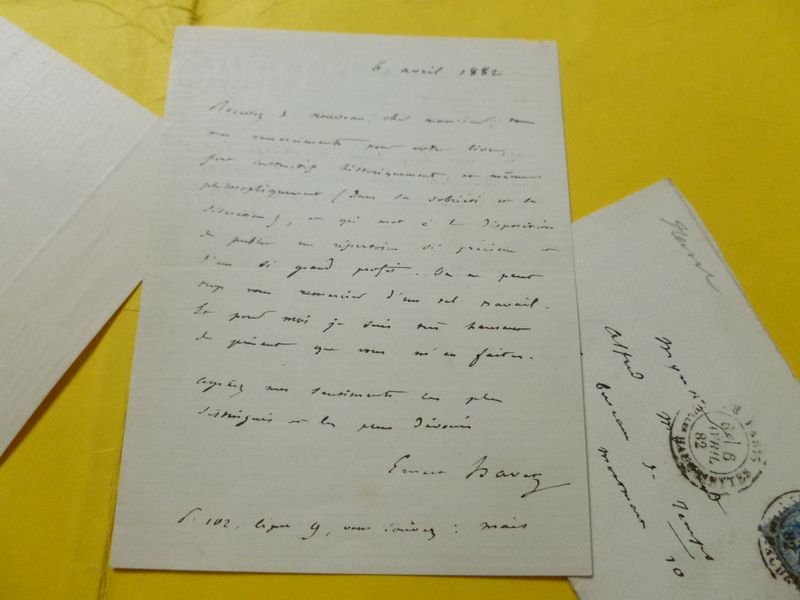 6 avril 1882
Recevez de nouveau, cher monsieur, tous
mes remerciements pour votre livre,
fort instructif historiquement, et même
philosophiquement (dans sa sobriété et sa
discrétion), et qui met à la disposition
du public un répertoire si précieux et
d'un si grand profit. On ne peut
trop vous remercier d'un tel travail.
Et pour moi je suis très heureux
du présent que vous m'en faites.
Agréez mes sentiments les plus
distingués et les plus dévoués
Ernest Havet
P. 102, ligne 9, vous écrivez : mais
Monsieur
Alfred
bureau du Temps
10
PARIS
6
AVRIL
82